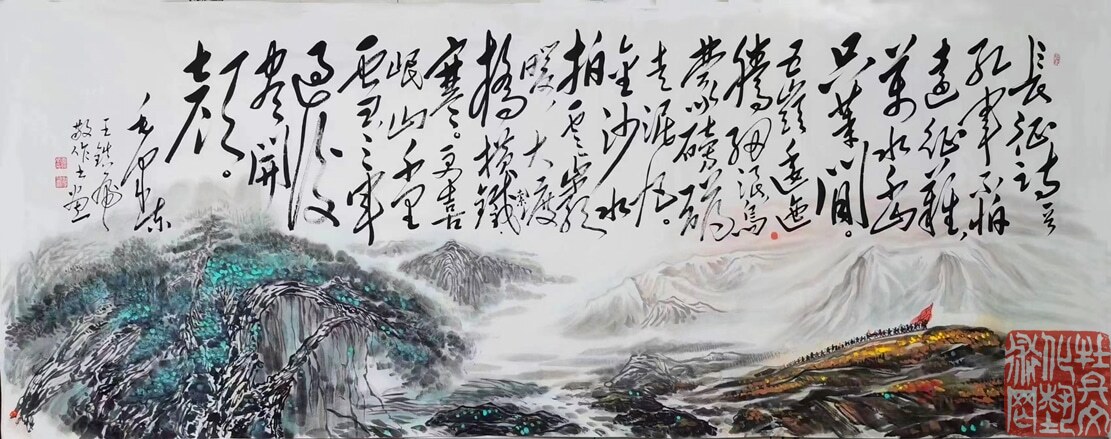 長征詩一首
紅軍不怕
遠征難，
萬水千山
只等閒。
五嶺逶迤
騰細浪烏
蒙磅礴
走泥丸。
金沙水
拍雲崖
暖，大渡
橋橫鐵索
寒。更喜
岷山千里
雪三軍
過後
盡開
顏。
毛澤東
敬作書畫